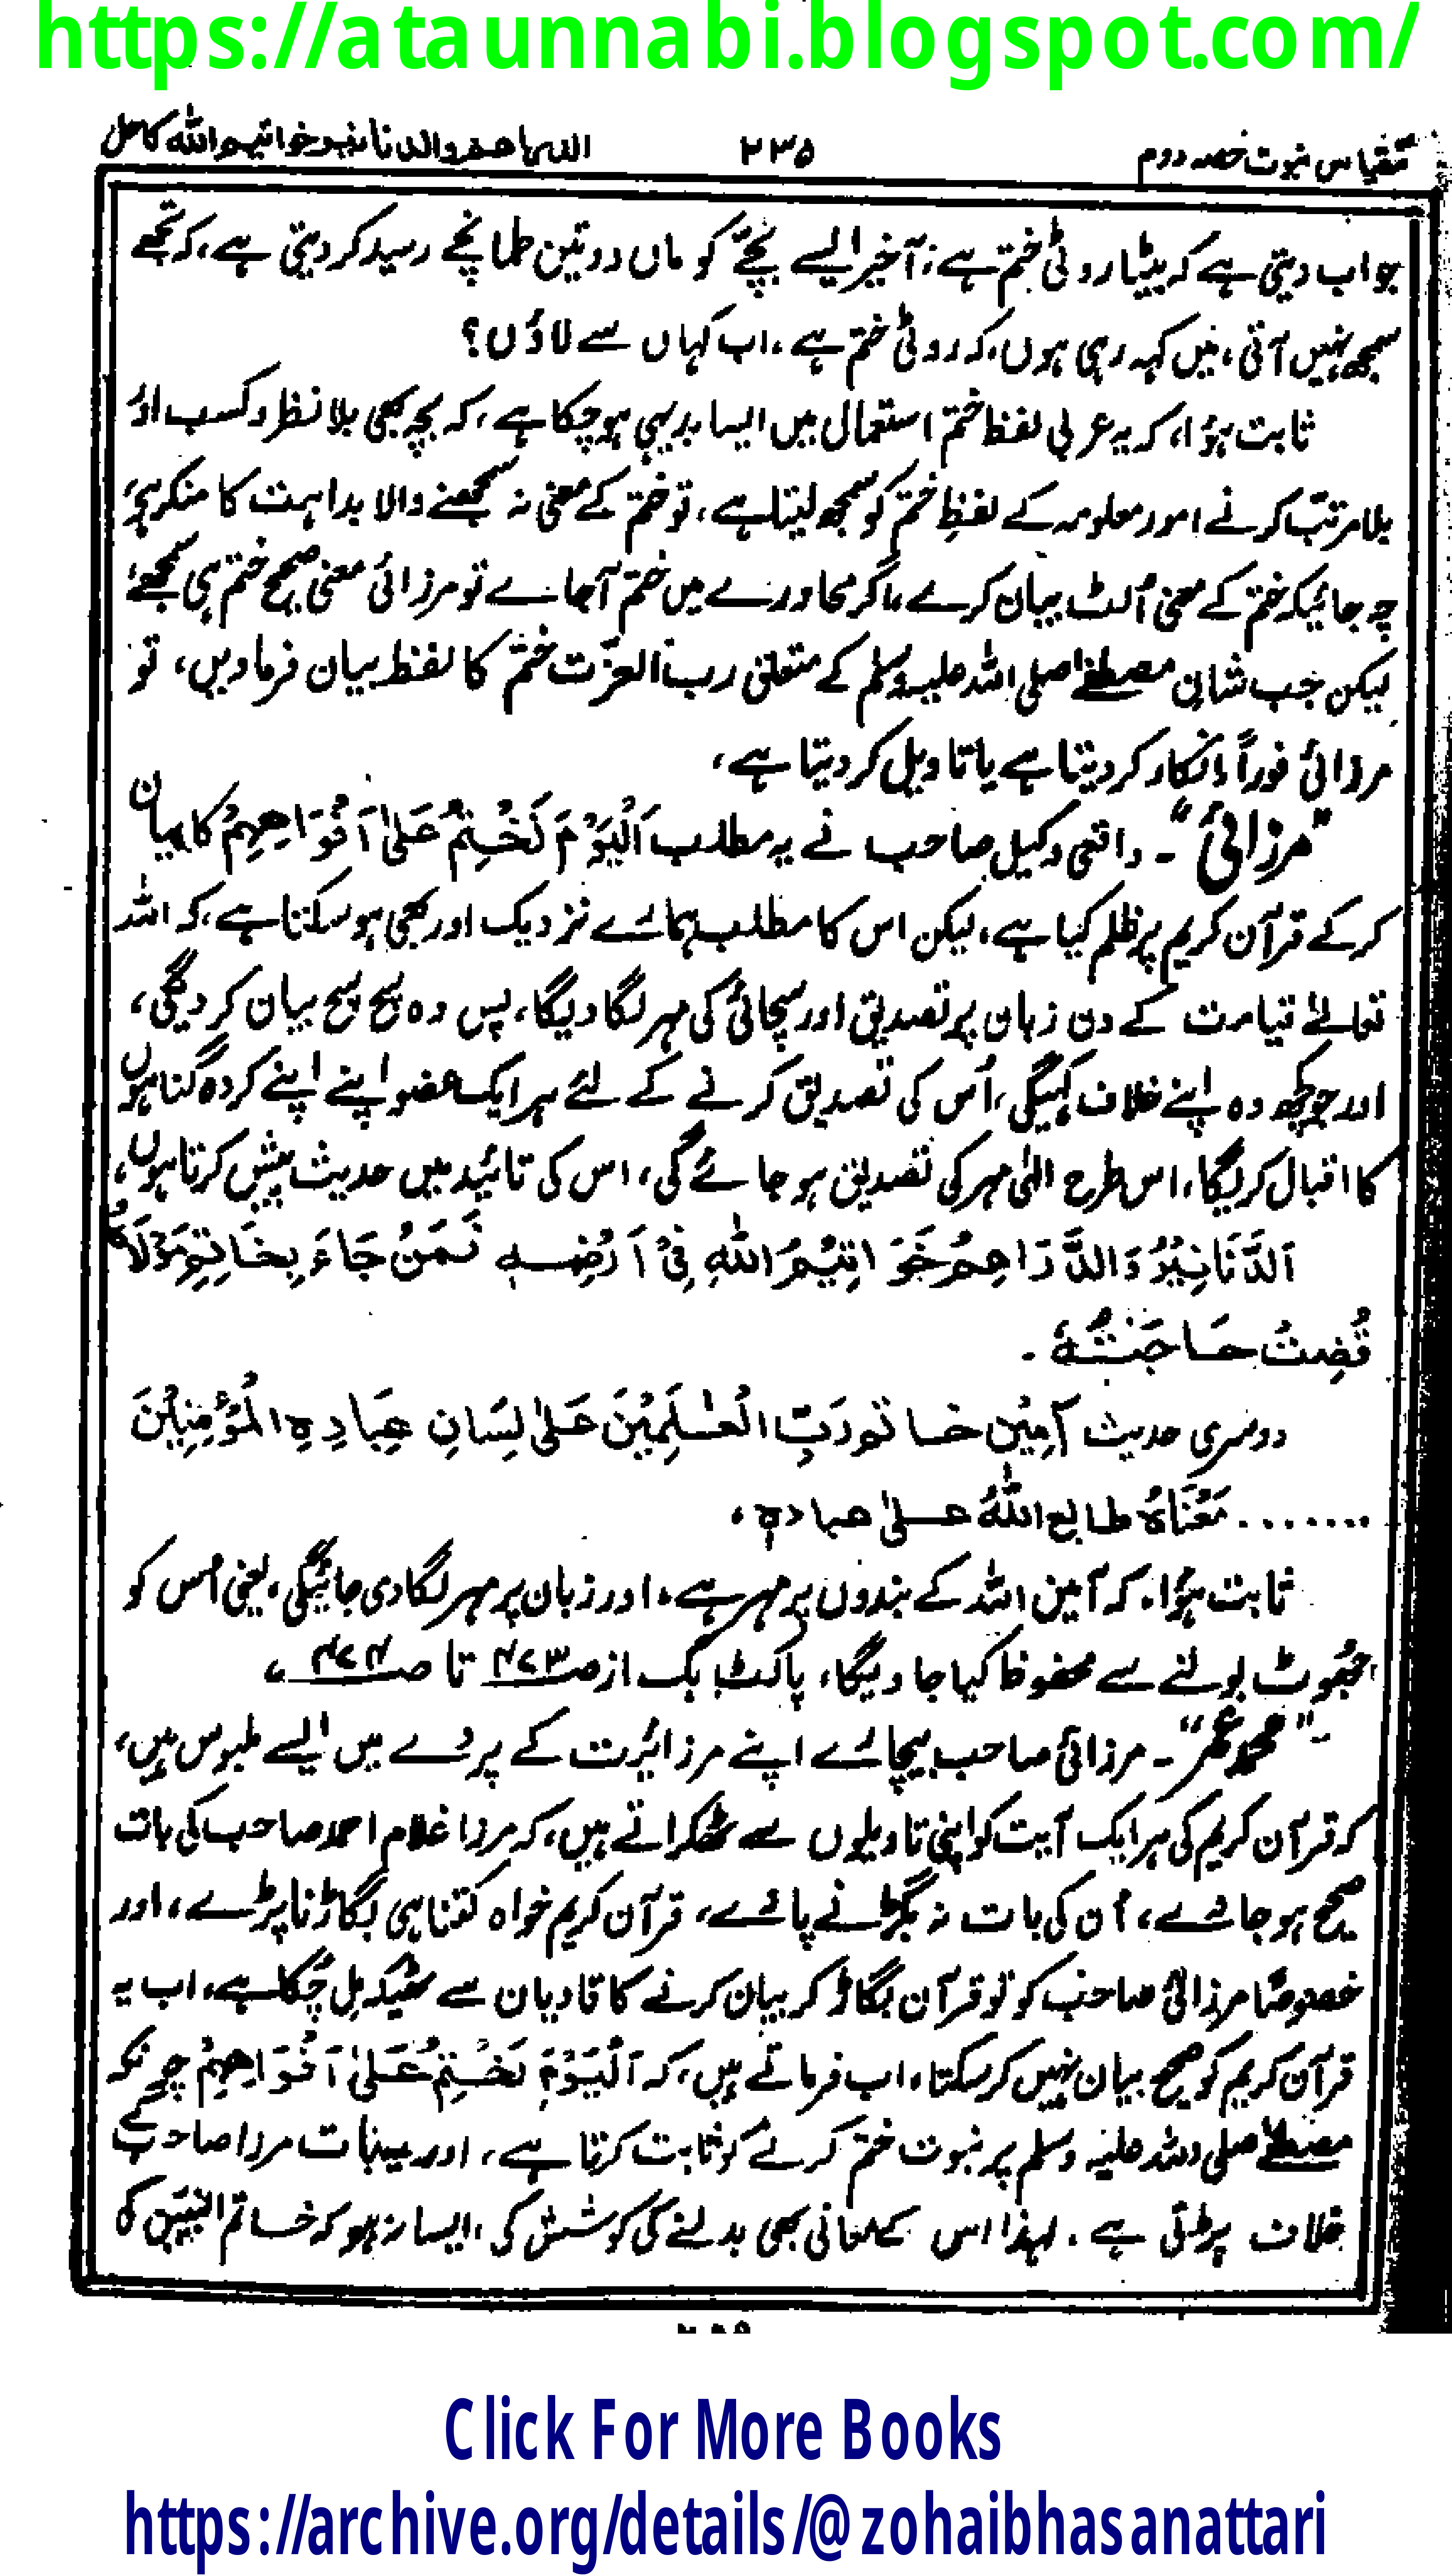 https://ataunnabi.blogspot.com/
مقیاس نبوت حصہ دوم ۲۳۵ الدراھم والدنانیر خواتیم اللہ کا حل
جواب دیتی ہے کہ بیٹا روٹی ختم ہے، آخیر ایسے بچّے کو ماں دو تین طمانچے رسید کر دیتی ہے، کہ تجھے
سمجھ نہیں آتی، میں کہہ رہی ہوں، کہ روٹی ختم ہے، اب کہاں سے لاؤں؟
ثابت ہؤا، کہ یہ عربی لفظ ختم استعمال میں ایسا بدیہی ہو چکا ہے، کہ بچہ بھی بلا نظر وکسب اور
بلا مرتب کرنے امور معلومہ کے لفظِ ختم کو سمجھ لیتا ہے، تو ختم کے معنی نہ سمجھنے والا بداہت کا منکر ہے،
چہ جائیکہ ختم کے معنی اُلٹ بیان کرے، اگر محاورے میں ختم آ جاۓ تو مرزائی معنی صحیح ختم ہی سمجھے،
لیکن جب شانِ مصطفےٰ صلی اللہ علیہ وسلم کے متعلق رب العزّت ختم کا لفظ بیان فرماویں، تو
مرزائی فوراً انکار کر دیتا ہے یا تاویل کر دیتا ہے،
"مرزائی"۔ واقعی وکیل صاحب نے یہ مطلب اَلْیَوْمَ نَخْتِمُ عَلٰی اَفْوَاھِھِمْ کا بیان
کر کے قرآن کریم پر ظلم کیا ہے، لیکن اس کا مطلب ہمارے نزدیک اور بھی ہو سکتا ہے، کہ اللہ
تعالےٰ قیامت کے دن زبان پر تصدیق اور سچائی کی مہر لگا دیگا، پس وہ سچ سچ بیان کر دیگی،
اور جو کچھ وہ اپنے خلاف کہیگی، اُس کی تصدیق کرنے کے لئے ہر ایک عضو اپنے اپنے کردہ گناہوں
کا اقبال کریگا، اس طرح الٰہی مہر کی تصدیق ہو جائے گی، اس کی تائید میں حدیث پیش کرتا ہوں،
اَلدَّنَانِیْرُ وَالدَّرَاھِمُ خَوَاتِیْمُ اللہِ فِیْ اَرْضِہٖ فَمَنْ جَاءَ بِخَاتِمِ مَوْلَاہُ
قُضِتْ حَاجَتُہٗ۔
دوسری حدیث آمِیْن خاتم رَبِّ الْعٰلَمِیْنَ عَلٰی لِسَانِ عِبَادِہِ الْمُؤْمِنِیْنَ
....... مَعْنَاہُ طابع اللہُ علیٰ عبادہٖ،
ثابت ہؤا، کہ آمین اللہ کے بندوں پر مہر ہے، اور زبان پر مہر لگا دی جائیگی، یعنی اُس کو
جُھوٹ بولنے سے محفوظ کیا جاویگا، پاکٹ بک از صـ ۴۷۳ تا صـ ۴۷۴،
"محمد عمر"۔ مرزائی صاحب بیچارے اپنے مرزائیت کے پردے میں ایسے ملبوس ہیں،
کہ قرآن کریم کی ہر ایک آیت کو اپنی تاویلوں سے ٹھکراتے ہیں، کہ مرزا غلام احمد صاحب کی بات
صحیح ہو جاوے، اُن کی بات نہ بگڑنے پاوے، قرآن کریم خواہ کتنا ہی بگاڑنا پڑے، اور
خصوصًا مرزائی صاحب کو تو قرآن بگاڑ کر بیان کرنے کا قادیان سے ٹھیکہ مِل چُکا ہے، اب یہ
قرآن کریم کو صحیح بیان نہیں کر سکتا، اب فرماتے ہیں، کہ اَلْیَوْمَ نَخْتِمُ عَلٰی اَفْوَاھِھِمْ چونکہ
مصطفےٰ صلی اللہ علیہ وسلم پر نبوت ختم کرنے کو ثابت کرتا ہے، اور یہ بات مرزا صاحب کے
خلاف پڑتی ہے۔ لہذا اس کے معانی بھی بدلنے کی کوشش کی، ایسا نہ ہو کہ خاتم النبیین کی
Click For More Books
https://archive.org/details/@zohaibhasanattari